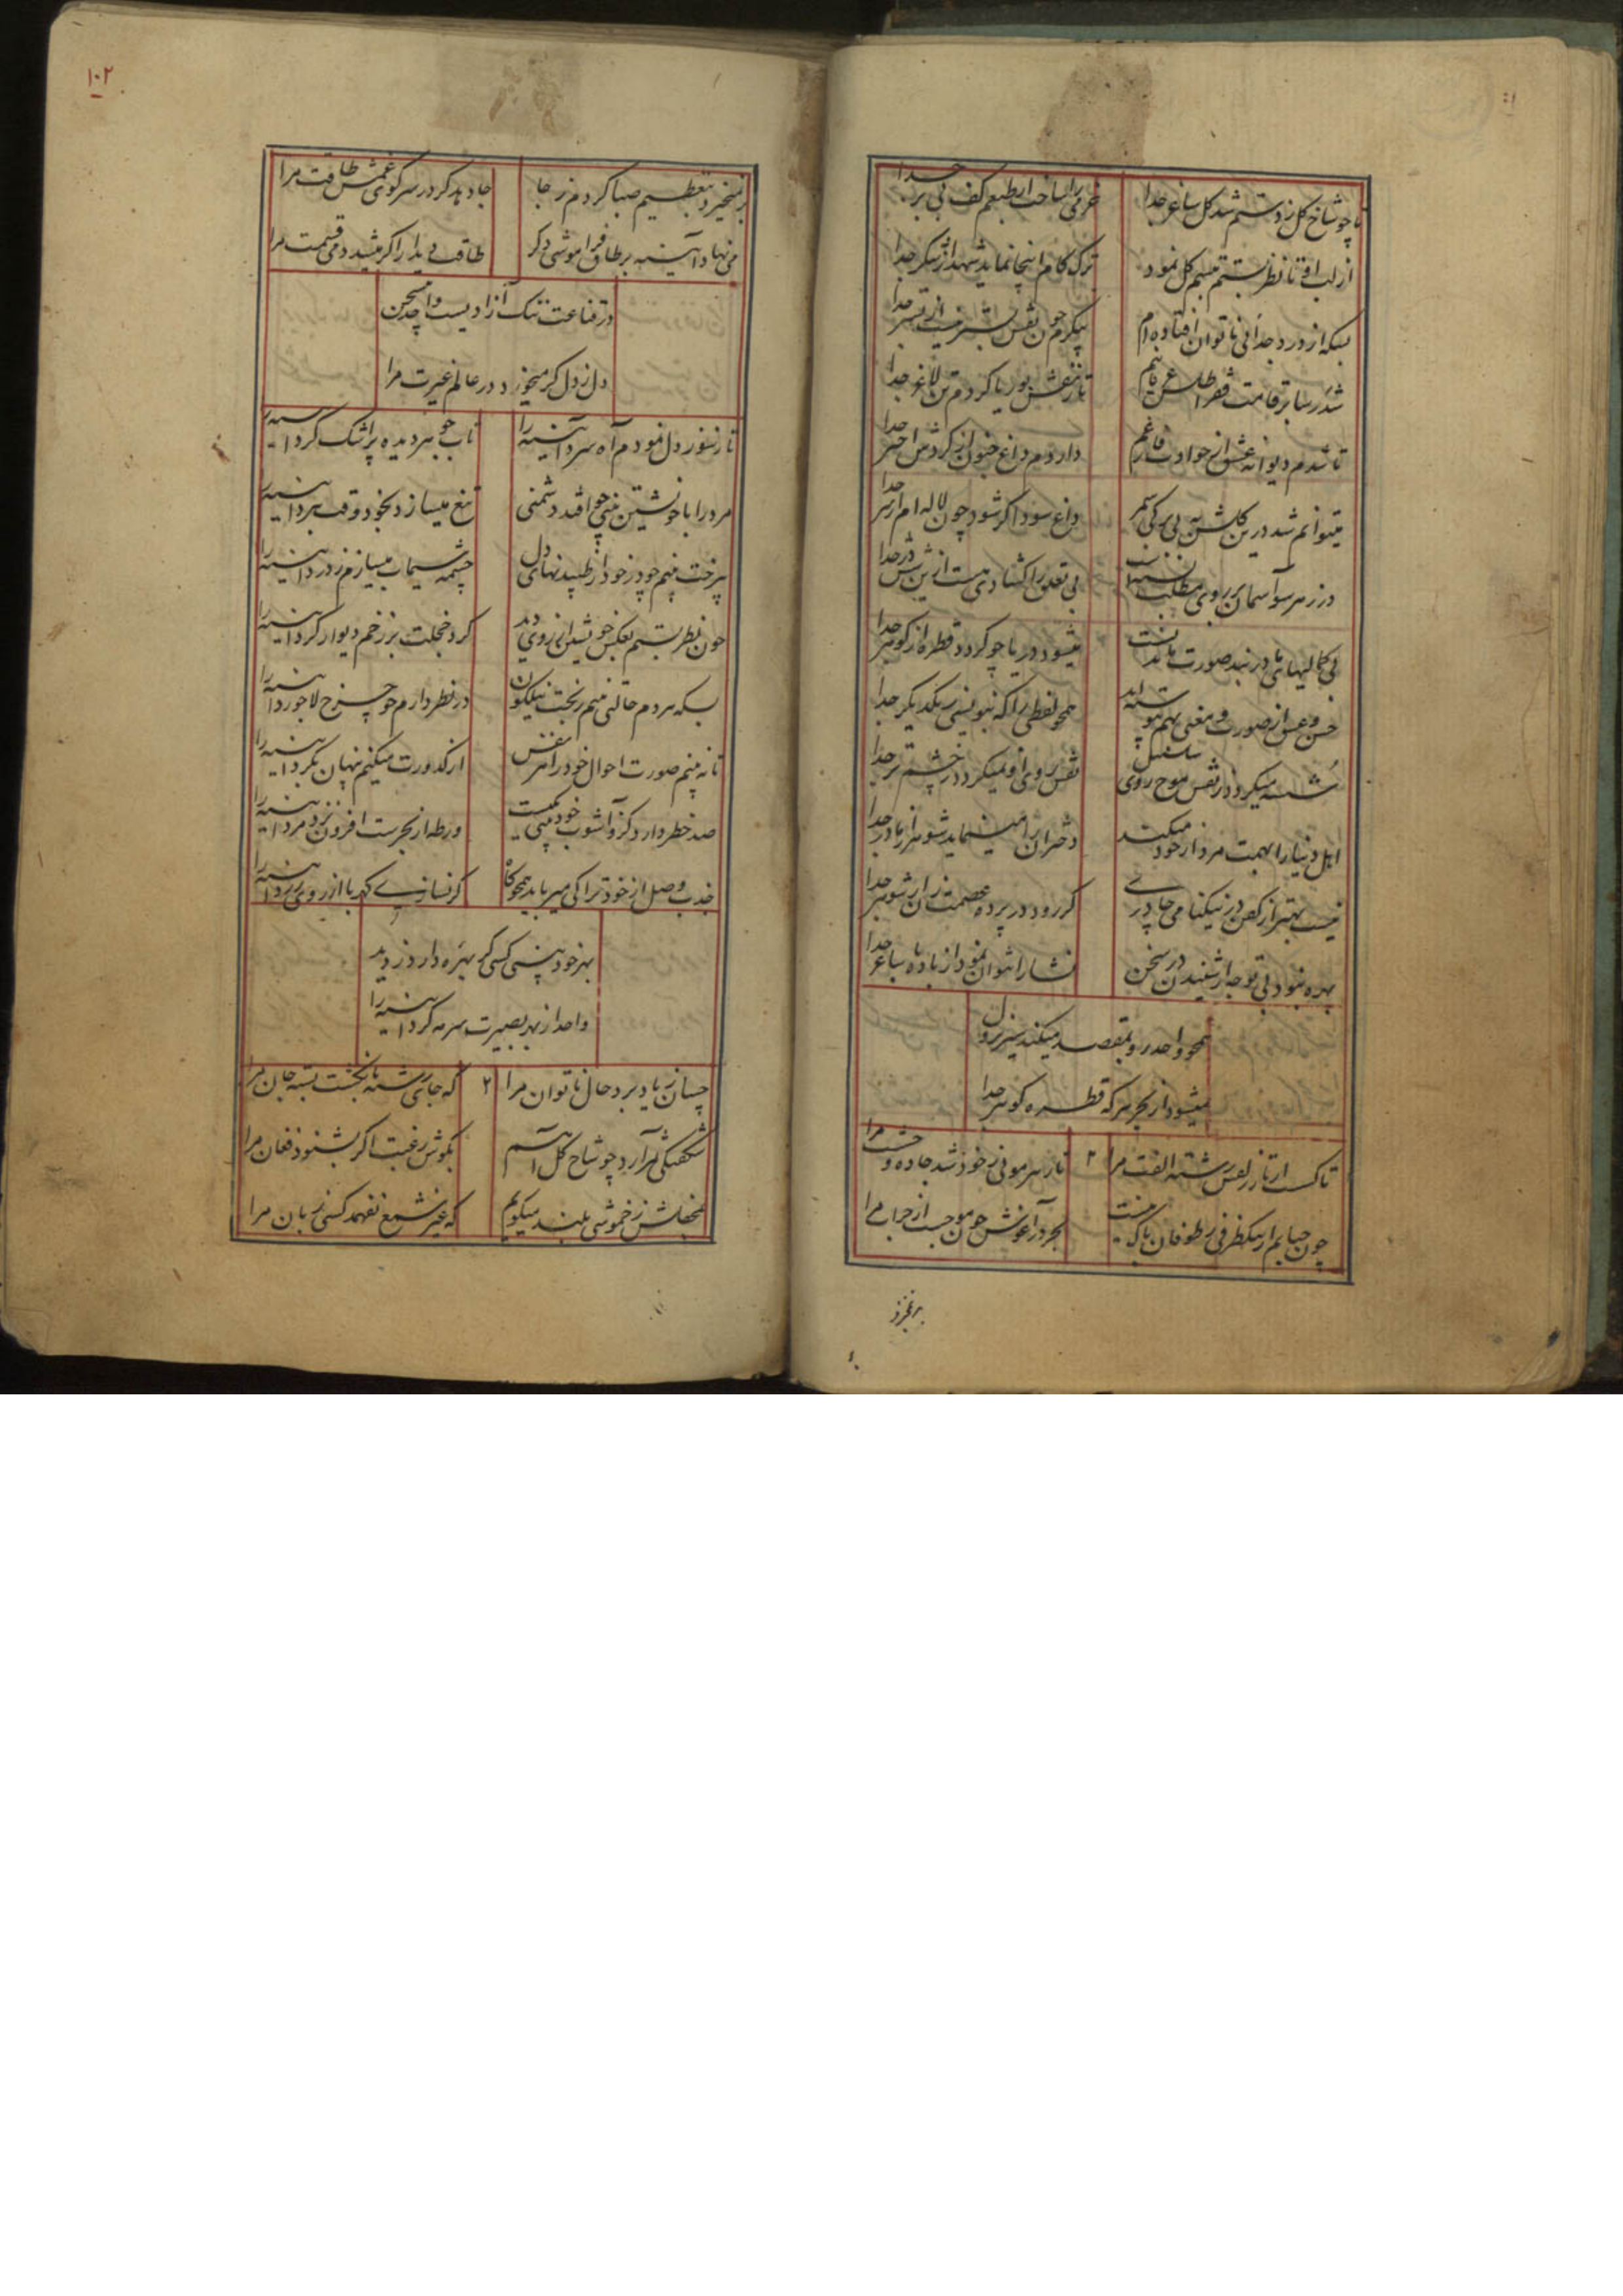 تا چو شاخ گل ز دستم شد گل ساغر جدا
خرمی را ساخت از طبعم کف بی بر جدا
از لب او تا نظر بستم تبسم گل نمود
ترک کام اینجا نماید شهد از شکر جدا
بسکه از درد جدائی ناتوان افتاده ام
پیکرم چون نقش بستر نیست از بستر جدا
شد رسا بر قامت فقر اطلس عریانیم
تا ز نقش بوریا کردم تن لاغر جدا
تا شدم دیوانه عشق از حوادث فارغم
دارودم داغ جنون از گردش اختر جدا
میتوانم شد درین گلشن به بی برگی سمر
داغ سودا گر شود چون لاله ام از سر جدا
در ز هر سو آسمان بر روی مطلب بسته است
بی تعلق را گشادی هست ازین شش در جدا
بی کمالیهای ما در بند صورت ماندنست
میشود دریا چو گردد قطره از گوهر جدا
حسن و عشق از صورت و معنی بهم پیوسته اند
همچو لفظی را که ننویسی ز یکدیگر جدا
شسته میگردد ز نقش موج روی
نقش روی او نمیگردد ز چشم تر جدا
اهل دنیا را بهمت مرد از خود میکند
دختران را مینماید شوهر از مادر جدا
نیست بهتر از کفن در نیکنامی چادری
گر رود در پرده عصمت زن از شوهر جدا
بهره نبود بی توجه از شنیدن در سخن
نشأ را نتوان نمود از باده با ساغر جدا
همچو واحد رو بمقصد میکند سیر نزول
میشود از بحر هر که قطره گوهر جدا
تا گسست از تار زلفش رشته الفت مرا
۲
تار هر موئی ز خود شد جاده وحشت مرا
چون حبابم از تنک ظرفی ز طوفان باک نیست
بحر در آغوش چون موجست از مرا
برنخیزد
۱۰۲
برنمیخیزد بتعظیم صبا گردم ز جا
جا دهد گر در سر کوی غمش طاقت مرا
می نهاد آئینه بر طاق فراموشی دگر
طاقت دیدار را گر میشد و می قسمت مرا
در قناعت ننگ آزادیست واحد
دل ز دل گر میخورد در عالم غیرت مرا
تا ز تنور دل نمودم آه سرد آئینه را
تاب جوهر دیده پر اشک کرد آئینه را
مرد را با خویشتن بینی چو افتد دشمنی
تیغ میسازد بخود وقت نبرد آئینه را
بیرخت بینم چو در خود از طپیدنهای دل
چشمه سیماب میسازم ز درد آئینه را
چون نظر بستم بعکس خویشتن از روی دید
گرد خجلت بر رخم دیوار کرد آئینه را
بسکه هر دم حالتی بینم ز بخت نیلگون
در نظر دارم چو چرخ لاجورد آئینه را
تا نه بینم صورت احوال خود را هر نفس
از کدورت میکنم پنهان بگرد آئینه را
صد خطر دارد کزو آشوب خود بینی کمیست
ورطه از بحرست افزون نزد مرد آئینه را
جذب وصل از خود ترا کی میرباید همچو کاه
گر نسازی کهربا از روی زرد آئینه را
بهر خود بینی کسی کی بهره دارد ز دید
واحد از بهر بصیرت سرمه کرد آئینه را
چسان ز یاد برد حال ناتوان مرا
۲
که جای رشته بانگشت بسته جان مرا
شگفتگی ثمر آرد چو شاخ گل آهم
بگوش رغبت اگر بشنود فغان مرا
بمحفلش ز خموشی بلند میگویم
که غیر شمع نفهمد کسی زبان مرا